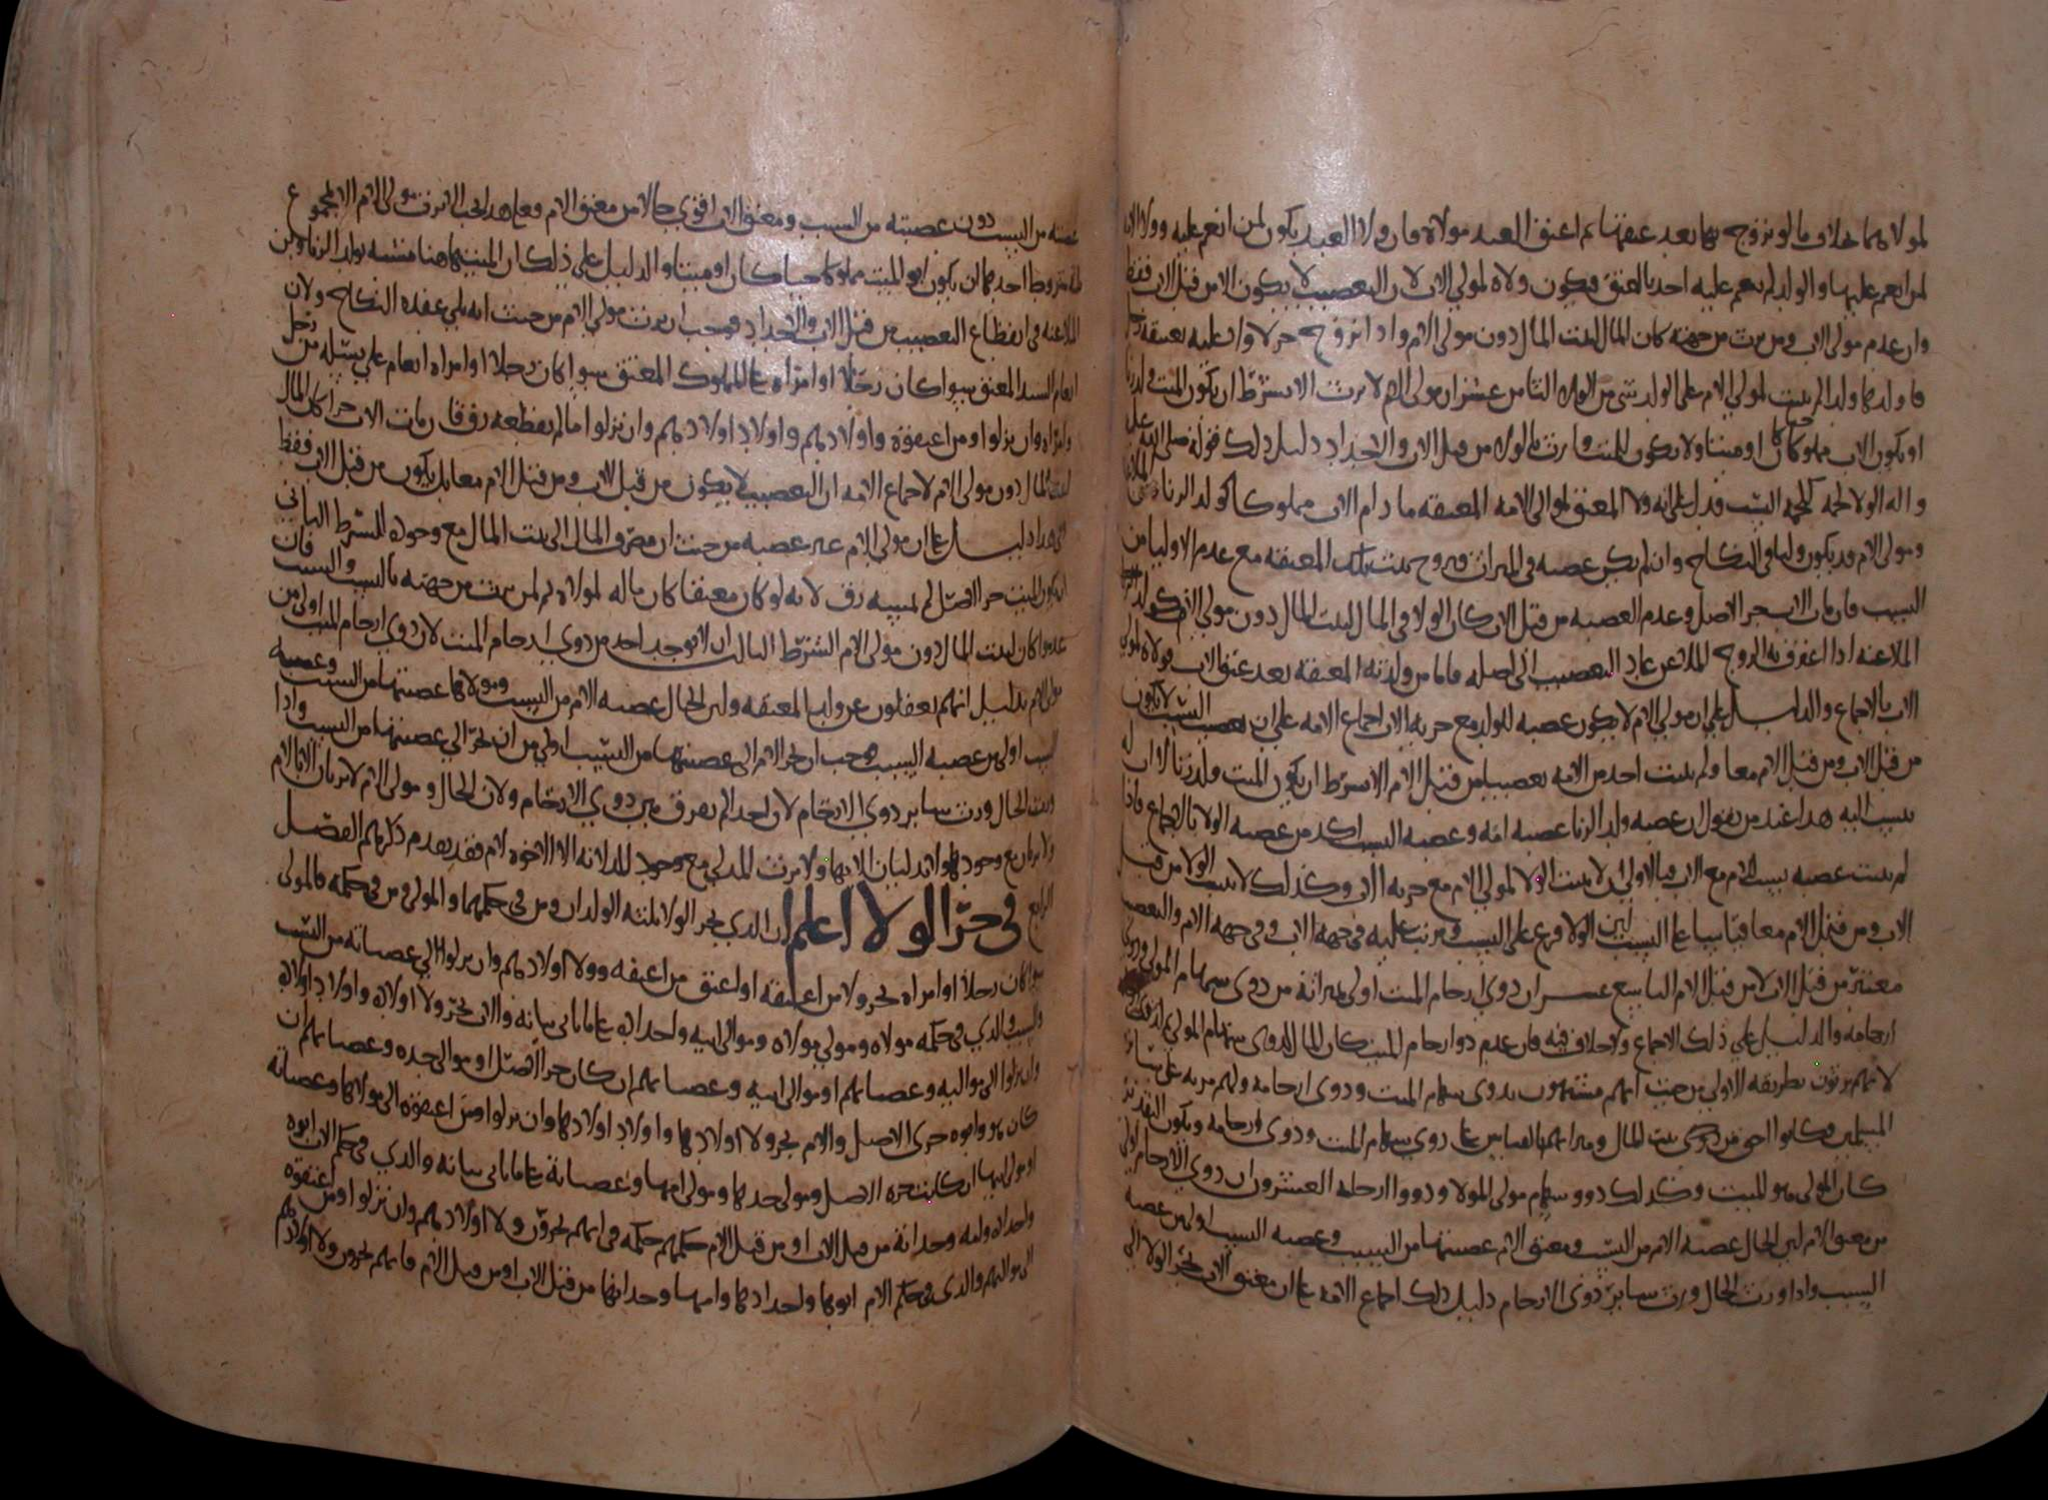 لمولاهما بخلاف ما لو تزوج بها بعد عتقها ثم اعتق العبد مولاه فان ولا العبد يكون لمن انعم عليه وولا الامه
لمن انعم عليها والولد لم ينعم عليه احد بالعتق فيكون ولاه لمولى الاب لان التعصيب لا يكون الا من قبل الاب فقط
وان عدم مولى الاب ومن يرث من جهته كان المال لبيت المال دون مولى الام واذا تزوج حر لا ولا عليه بمعتقه رجل
فاولدها ولدا لم يثبت لمولى الام على الولد شي من الولا الثامن عشر ان مولى الام لا يرث الا بشرط ان يكون الميت ولد زنا
او يكون الاب مملوكا حيا كان او ميتا ولا يكون للميت وارث بالولا من قبل الاب والاجداد دليل ذلك قوله صلى الله عليه
واله الولا لحمة كلحمة النسب فدل على انه ولا المعتق لموالي الامه المعتقه ما دام الاب مملوكا كولد الزنا
ومولى الام قد يكون وليا في النكاح وان لم يكن عصبه في الميراث فيزوج بنت تلك المعتقه مع عدم الاوليا من
النسب فان مات الاب حر الاصل وعدم العصبه من قبل الاب كان الولا في المال لبيت المال دون مولى الام كولد
الملاعنه اذا اعترف به الزوج الملاعن عاد التعصيب الى اصله فاما من ولدته المعتقه بعد عتق الاب فولاه لمولى
الاب بالاجماع والدليل على ان مولى الام لا يكون عصبه للولد مع حرية الاب اجماع الامه على ان تعصيب النسب لا يكون
من قبل الاب ومن قبل الام معا ولم يثبت احد من الامه تعصيبا من قبل الام الا بشرط ان يكون الميت ولد زنا لا اب له
ينسب اليه هذا عند من يقول ان عصبه ولد الزنا عصبه امه وعصبه النسب اكد من عصبه الولا بالاجماع فاذا
لم يثبت عصبه نسب الام مع الاب فبالاولى ان لا يثبت الولا لمولى الام مع حرية الاب وكذلك لا يثبت الولا من قبل
الاب ومن قبل الام معا قياسا على النسب لان الولا فرع على النسب ومرتب عليه في جهة الاب وفي جهة الام والتعصيب
معتبر من قبل الاب لا من قبل الام التاسع عشر ان ذوي ارحام الميت اولى بميراثه من ذوي سهام المولى وذوي
ارحامه والدليل على ذلك الاجماع ولا خلاف فيه فان عدم ذوو ارحام الميت كان المال لذوي سهام المولى
لانهم يرثون بطريقه الاولى من حيث انهم مشبهون بذوي سهام الميت وذوي ارحامه ولهم مزيه على سائر
المسلمين فكانوا احق من ذوي بيت المال وميراثهم بالقياس على ذوي سهام الميت وذوي ارحامه ويكون التقدير
كان المولى هو الميت وكذلك ذوو سهام مولى المولا وذووا ارحامه العشرون ان ذوي الارحام اولى
من معتق الام لان الخال عصبه الام من النسب ومعتق الام عصبتها من السبب وعصبه النسب اولى من عصبه
السبب واذا ورث الخال ورث سائر ذوي الارحام دليل ذلك اجماع الامه على ان معتق الاب يجر الولا الى
عصبته من النسب دون عصبته من السبب ومعتق الاب اقوى حالا من معتق الام فعلى هذا يجب الا يرث مولى الام الا بمجموع
شروط احدها ان يكون ابو الميت مملوكا حيا كان او ميتا والدليل على ذلك ان الميت هاهنا مشبه بولد الزنا وابن
الملاعنه في انقطاع التعصيب من قبل الاب والاجداد فيجب ان يرث مولى الام من حيث انه يلي عقدة النكاح ولان
انعام السيد المعتق سوا كان رجلا او امراه على المملوك المعتق سوا كان رجلا او امراه انعام على نسله من رجل
وامراه وان نزلوا ومن اعتقوه واولادهم واولاد اولادهم وان نزلوا ما لم يقطعه رق فان مات الاب حرا كان المال
لبيت المال دون مولى الام لاجماع الامه ان التعصيب لا يكون من قبل الاب ومن قبل الام معا بل يكون من قبل الاب فقط
وفي هذا دليل على ان مولى الام غير عصبه من حيث ان مصرف المال الى بيت المال مع وجوده الشرط الثاني
ان يكون الميت حر الاصل لم يمسه رق لانه لو كان معتقا كان ماله لمولاه ثم لمن يرث من جهته بالنسب والسبب فان
عدموا كان لبيت المال دون مولى الام الشرط الثالث ان لا يوجد احد من ذوي ارحام الميت لان ذوي ارحام الميت اولى من
مولى الام بدليل انهم يعقلون عن ولد المعتقه ولان الخال عصبه الام من النسب ومولاها عصبتها من السبب وعصبه
النسب اولى من عصبه السبب فيجب ان يجر الام الى عصبتها من النسب اولى من ان تجر الى عصبتها من السبب واذا
ورث الخال ورث سائر ذوي الارحام لان احدا لم يفرق بين ذوي الارحام ولان الخال ومولى الام لا يرثان الا بالام
ولا يرثان مع وجودها لانهما يدليان بها ولا يرث المدلي مع وجود المدلى به الا الاخوه لام فقد تقدم ذكرهم الفصل
الرابع في جر الولا اعلم ان الذي يجر الولا ثلثة الوالدان ومن في حكمهما والمولى ومن في حكمه فالمولى
سوا كان رجلا او امراه يجر ولا من اعتقه او اعتق من اعتقه وولا اولادهم وان نزلوا الى عصباته من النسب
والسبب والذي في حكمه مولاه ومولى مولاه وموالي ابيه واجداده على ما ياتي بيانه والاب يجر ولا اولاده واولاد اولاده
وان نزلوا الى مواليه وعصباتهم او موالي ابيه وعصباتهم ان كان حر الاصل او موالي جده وعصباتهم ان
كان هو وابوه حري الاصل والام تجر ولا اولادها واولاد اولادها وان نزلوا ومن اعتقوه الى مولاها وعصباته
او مولى ابيها ان كانت حره الاصل ومولى جدها ومولى امها وعصباته على ما ياتي بيانه والذي في حكم الاب ابوه
واجداده وامه وجداته من قبل الاب او من قبل الام حكمهم حكمه في انهم يجرون ولا اولادهم وان نزلوا ومن اعتقوه
الى مواليهم والذي في حكم الام ابوها واجدادها وامها وجداتها من قبل الاب او من قبل الام فانهم يجرون ولا اولادهم